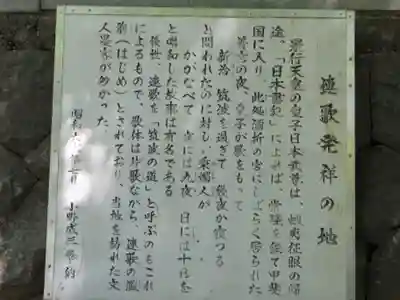 連歌発祥の地
景行天皇の皇子日本武尊は、蝦夷征服の帰
途、「日本書紀」によれば、常陸を経て甲斐
国に入り、此処酒折の宮にしばらく居られた
皇子が歌をもって
新治 筑波を過ぎて 幾夜か寝つる
と問われたのに対し、乗燭人が
かがなべて 夜には九夜 日には十日を
と唱和した故事は有名である
後世、連歌を「筑波の道」と呼ぶのもこれ
によるもので、歌体は片歌ながら、連歌の濫
觴(はじめ)とされており、当地を訪れた文
人墨客が多かった。
小野成三